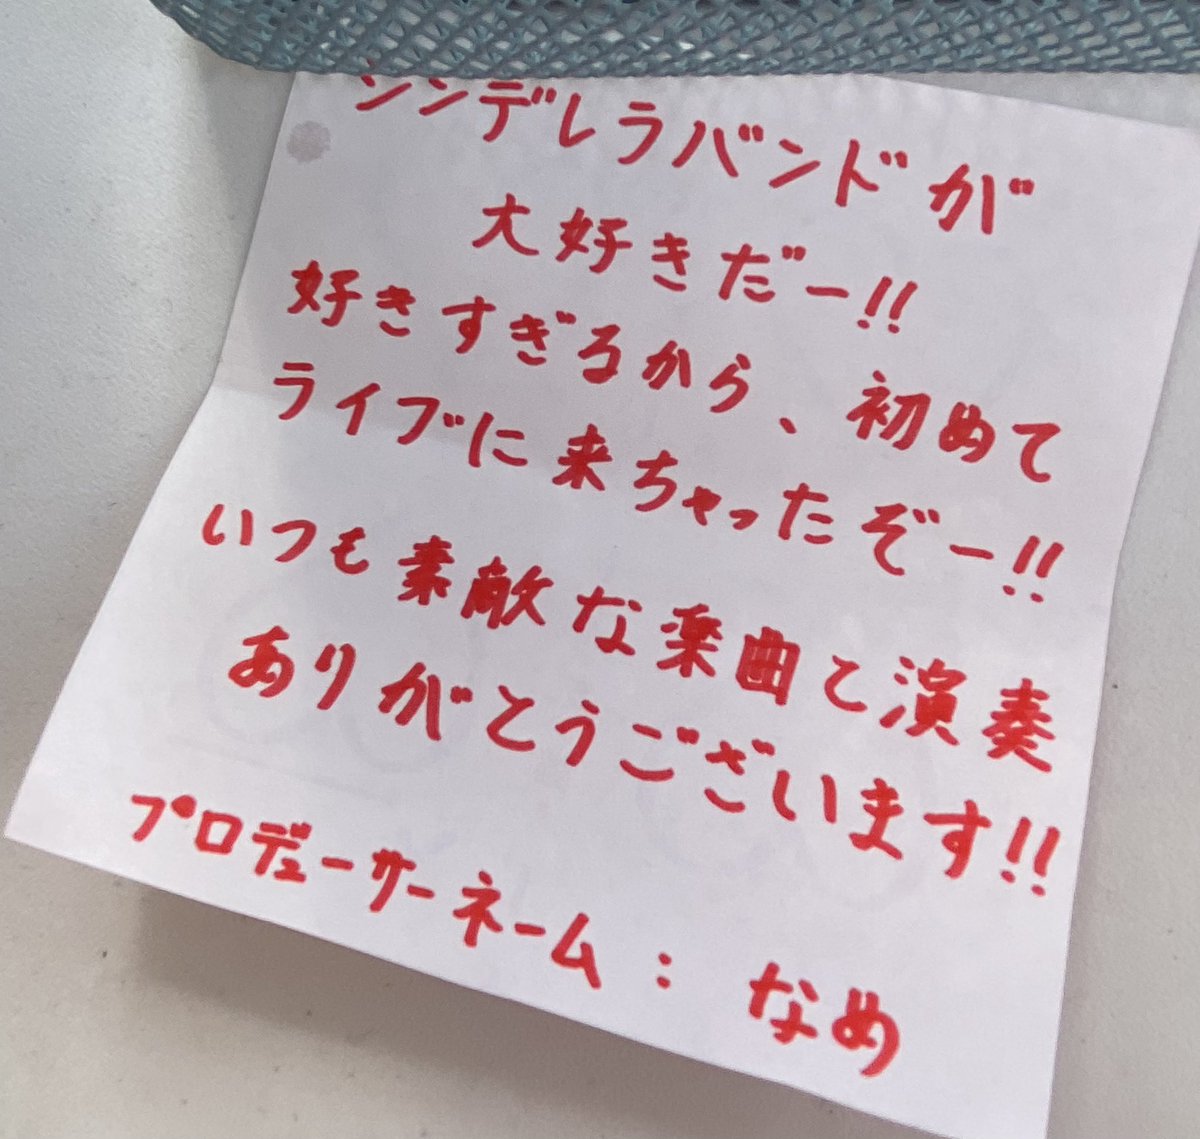 シンデレラバンドが
大好きだー!!
好きすぎるから、初めて
ライブに来ちゃったぞー!!
いつも素敵な楽曲と演奏
ありがとうございます!!
プロデューサーネーム：なめ